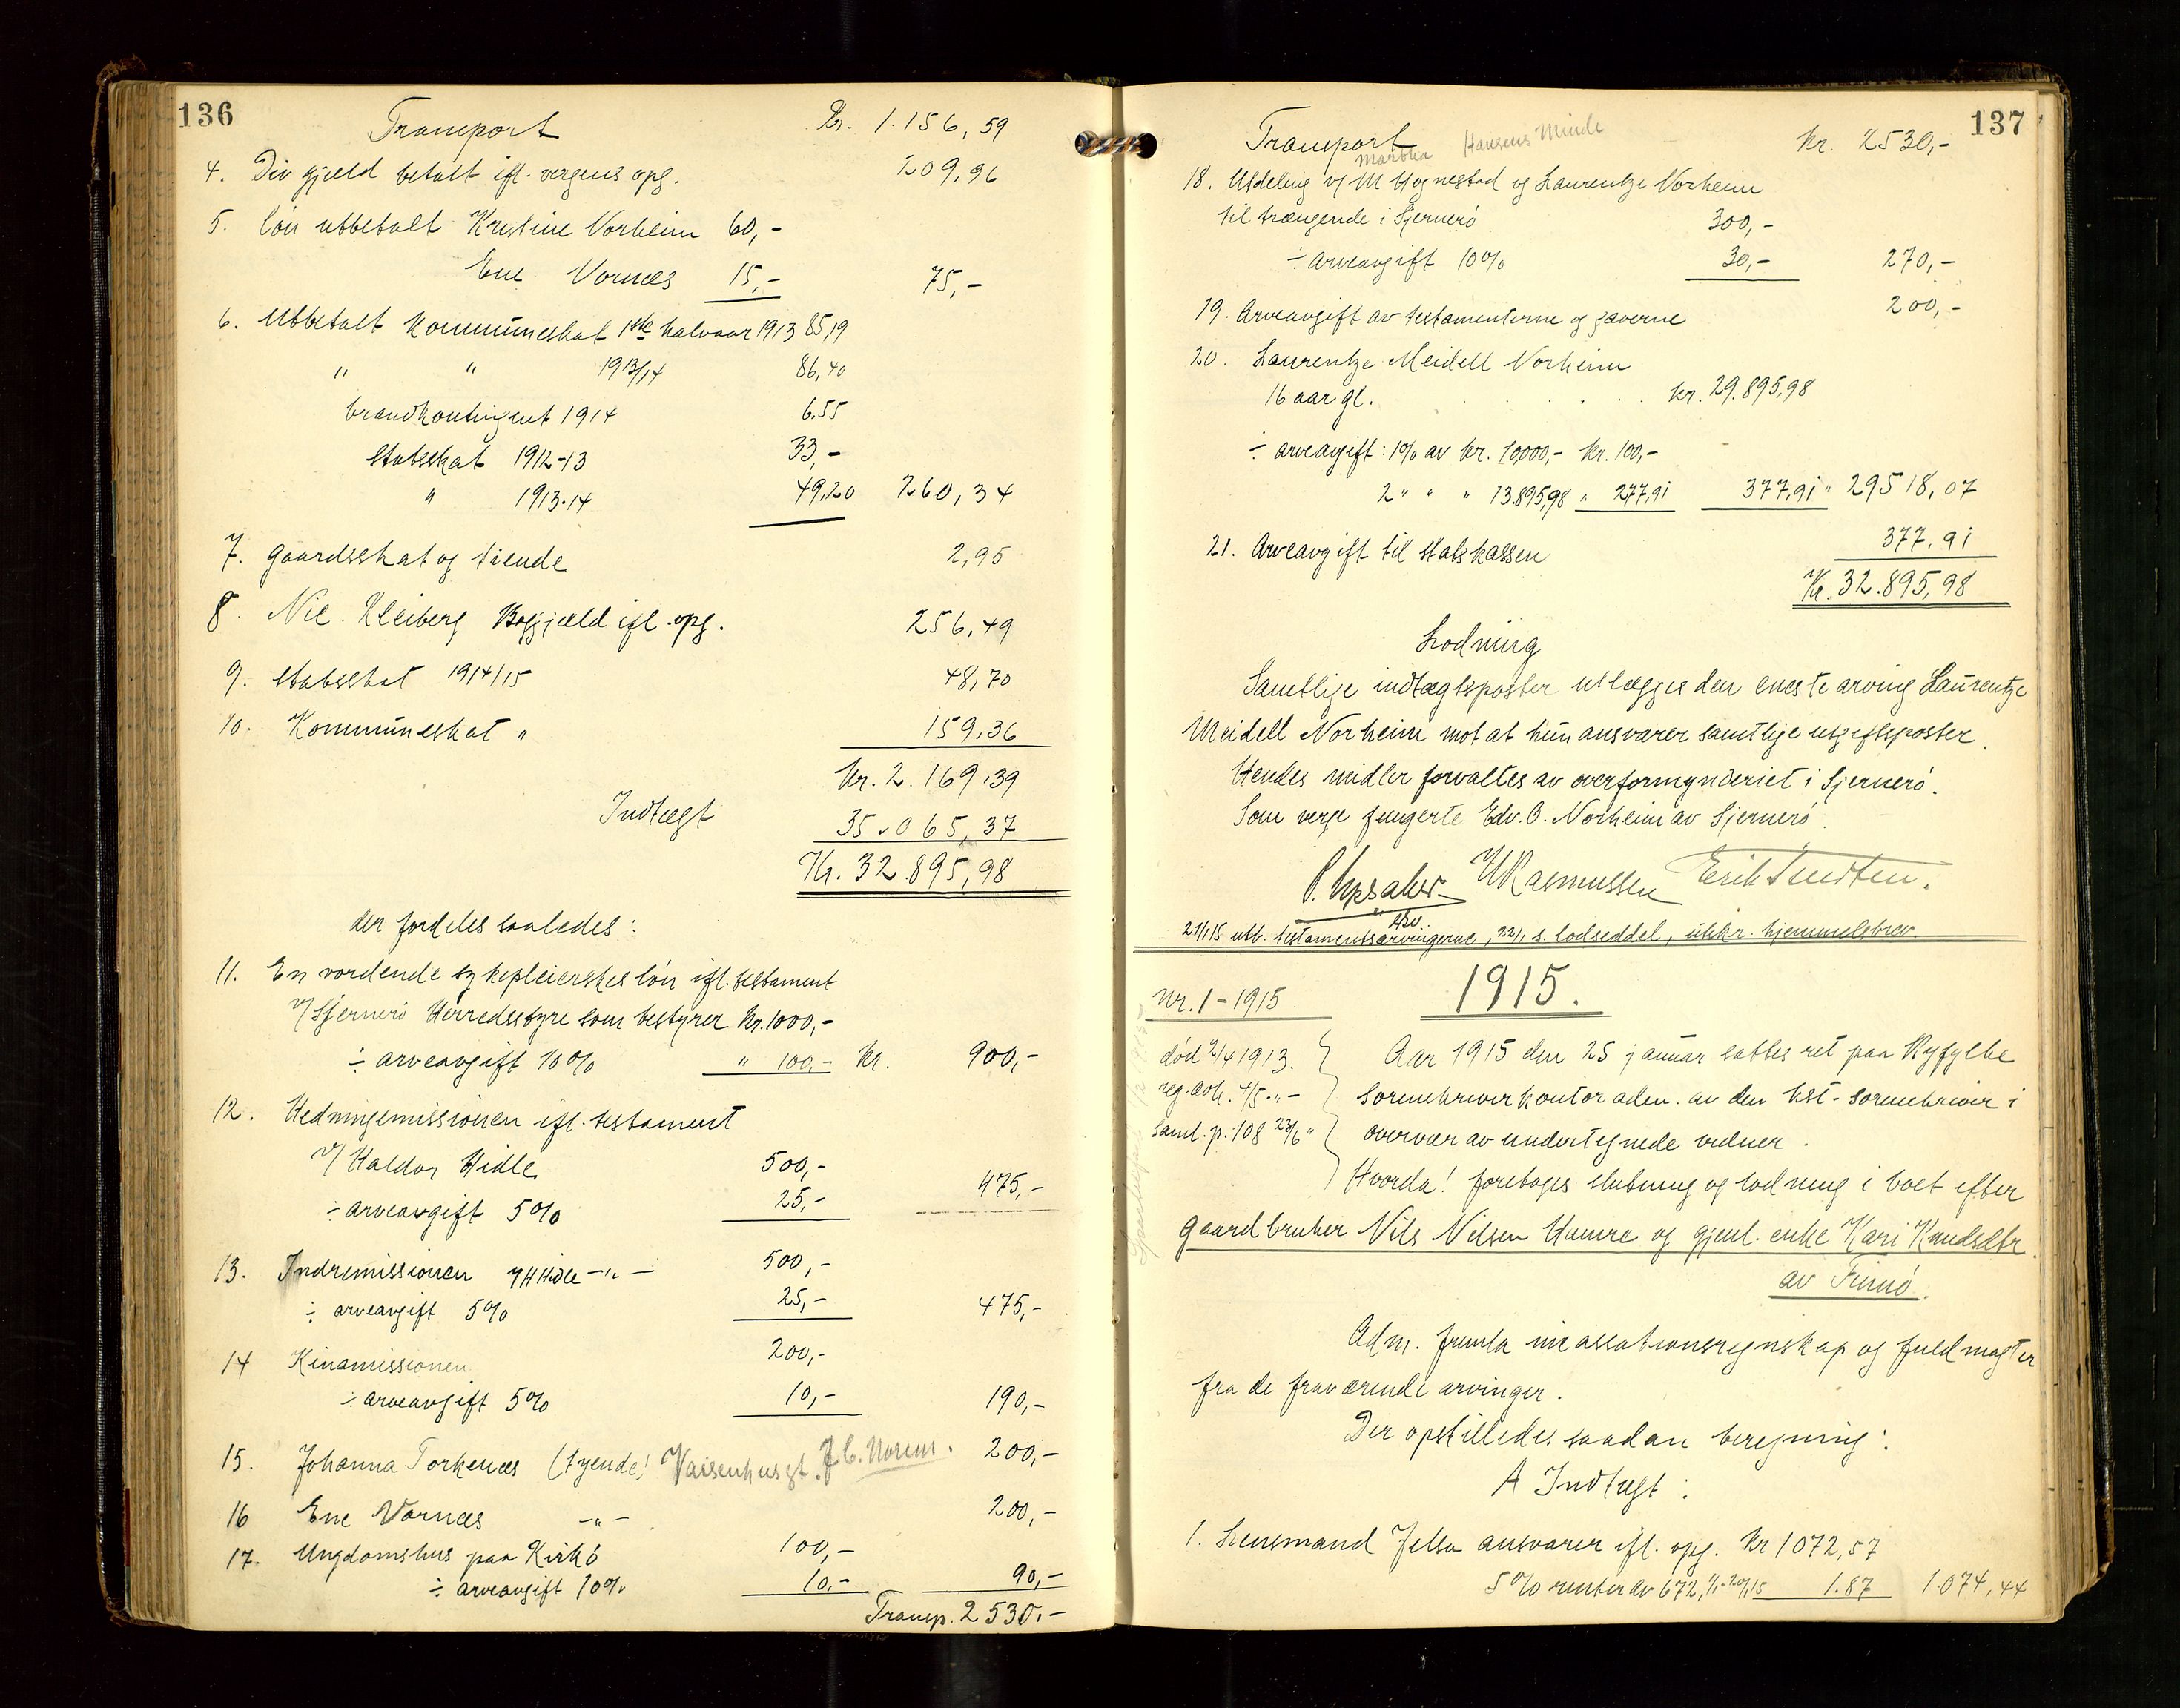 136
Transport Kr. 1.156,59
4. Div gjæld betalt ifl. vergens opg. 209,96
5. løn utbetalt Kristine Norheim 60,-
Ene Vornes 15,- 75,-
6. Utbetalt Kommuneskat 1ste halvaar 1913 85,19
" " 1913/14 86,40
brandkontingent 1914 6.55
Statsskat 1912-13 33,-
" 1913-14 49,20 260,34
7. Gaardsskat og tiende 2,95
8. Nil. Kleiberg Bogjæld ifl. opg. 256,49
9. Statsskat 1914/15 48,70
10. Kommuneskat " 159,36
Kr. 2.169,39
Indtægt 35.065,37
Kr. 32.895,98
der fordeles saaledes:
11. En vordende sykepleierskes løn ifl. testament
v/ Sjernerø Herredsstyre som bestyrer Kr. 1000,-
÷ arveavgift 10% " 100,- Kr. 900,-
12. Hedningemissionen ifl. testament
v/ Haldor Hidle 500,-
÷ arveavgift 5% 25,- 475,-
13. Indremissionen v/ H Hidle -"- 500,-
÷ arveavgift 5% 25,- 475,-
14 Kinamissionen 200,-
÷ arveavgift 5% 10,- 190,-
15. Johanna Torkenæs (tyende) Vaisenhusgt. 200,-
16 Ene Vornæs -"- 200,-
17. Ungdomshus paa Kirkø 100,-
÷ arveavgift 10% 10,- 90,-
Transp. 2530,-
137
Transport Kr. 2530,-
Martha Hansens Minde
18. Utdeling v/ M Hognestad og Laurentze Norheim
til trængende i Sjernerø 300,-
÷ arveavgift 10% 30,- 270,-
19. Arveavgift av testamenterne og gaverne 200,-
20. Laurentze Meidell Norheim
16 aar gl. . . . . Kr. 29.895,98
÷ arveavgift: 1% av kr. 10,000,- kr. 100,-
2 " " " 13.895,98 " 277,91 377,91 " 29518,07
21. Arveavgift til statskassen 377,91
Kr. 32.895,98
Lodning
Samtlige indtægtsposter utlægges den eneste arving Laurentze
Meidell Norheim mot at hun ansvarer samtlige utgiftsposter.
Hendes midler forvaltes av overformynderiet i Sjernerø.
Som verge fungerte Edv. O. Norheim av Sjernerø.
P. Upsaker H Rasmussen Erik Knudsen.
21/1 15 utb. testamentsarvingerne, 22/1 s. lodseddel, utskr. hjemmelsbrev.
1915.
nr. 1-1915.
død 2/4 1913.
reg. avh. 4/5 "-
saml. p. 108 23/6 "
Aar 1915 den 25 januar sattes ret paa Ryfylke
sorenskriverkontor adm. av den kst. sorenskriver i
overvær av undertegnede vidner.
Hvorda! foretoges slutning og lodning i boet efter
gaardbruker Nils Nilsen Hamre og gjenl. enke Kari Knudsdtr.
av Finnø.
Adm. fremla incassationsregnskap og fuldmagter
fra de fraværende arvinger.
Der opstilledes saadan beregning:
A Indtægt:
1. Lensmand Jelsa ansvarer ifl. opg. Kr 1072,57
5% renter av 672,- 1/1-20/1 15 1.87 1.074,44